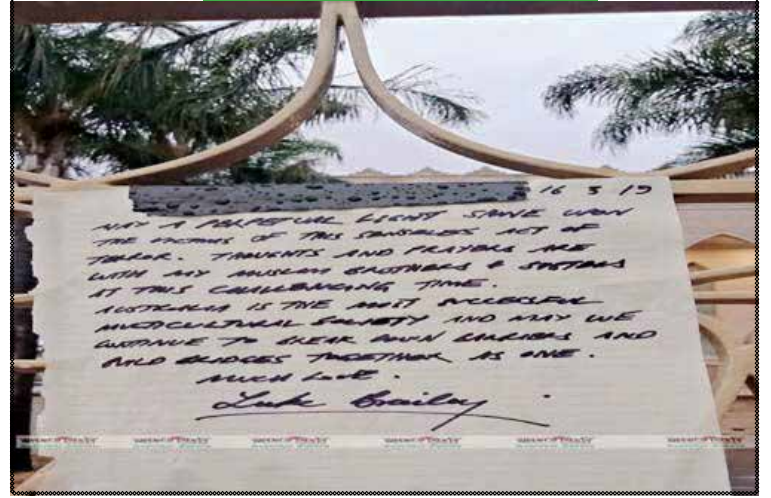 16 3 19
MAY A PERPETUAL LIGHT SHINE UPON
THE VICTIMS OF THIS SENSELESS ACT OF
TERROR. THOUGHTS AND PRAYERS ARE
WITH MY MUSLIM BROTHERS & SISTERS
AT THIS CHALLENGING TIME.
AUSTRALIA IS THE MOST SUCCESSFUL
MULTICULTURAL SOCIETY AND MAY WE
CONTINUE TO BREAK DOWN BARRIERS AND
BUILD BRIDGES TOGETHER AS ONE.
MUCH LOVE.
Luke Brailey